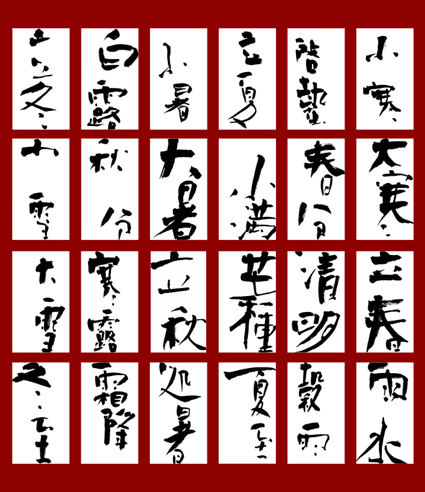 小寒
大寒
立春
雨水
啓蟄
春分
清明
穀雨
立夏
小満
芒種
夏至
小暑
大暑
立秋
処暑
白露
秋分
寒露
霜降
立冬
小雪
大雪
冬至